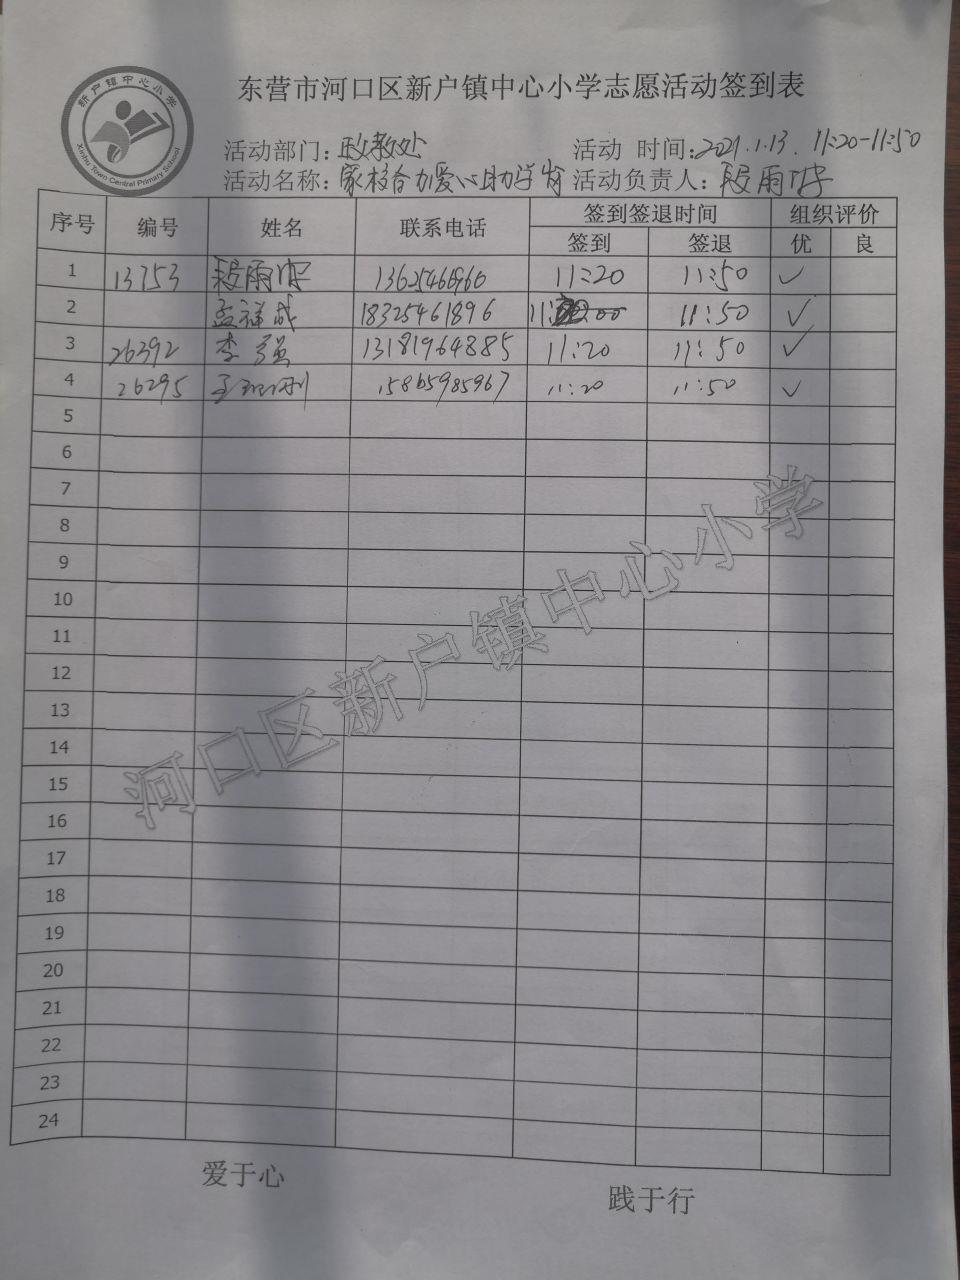 新户镇中心小学
Xinhu Town Central Primary School
东营市河口区新户镇中心小学志愿活动签到表
活动部门：政教处 活动 时间：2021.1.13. 11:20-11:50
活动名称：家校合力爱心助学岗 活动负责人：段雨
序号 编号 姓名 联系电话 签到签退时间 组织评价
签到 签退 优 良
1 13753 段雨 13625466960 11:20 11:50 ✓
2 孟祥成 18325461896 11: 11:50 ✓
3 26392 李强 13181964885 11:20 11:50 ✓
4 26295 王 15865985967 11:20 11:50 ✓
5
6
7
8
9
10
11
12
13
14
15
16
17
18
19
20
21
22
23
24
河口区新户镇中心小学
爱于心 践于行